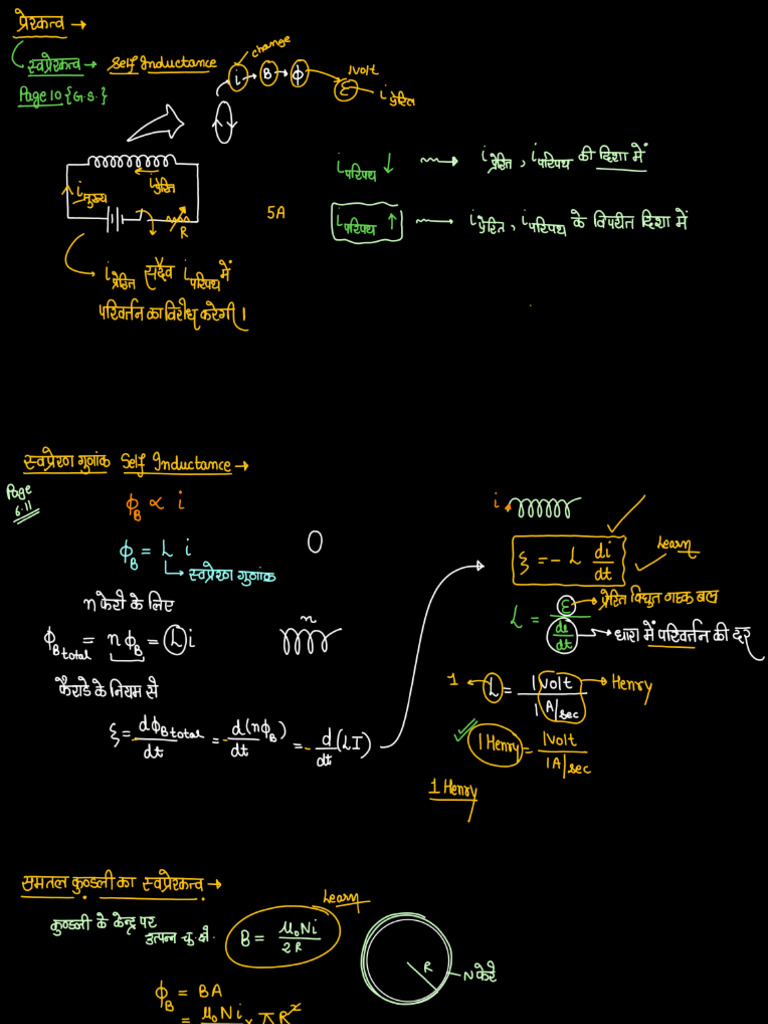 प्रेरकत्व →
स्वप्रेरकत्व → Self Inductance
Page 10 {G.S.}
change
i → B → ϕ → ε
1volt
i प्रेरित
i मुख्य
i प्रेरित
R
5A
i परिपथ ↓ → i प्रेरित, i परिपथ की दिशा में
i परिपथ ↑ → i प्रेरित, i परिपथ के विपरीत दिशा में
i प्रेरित सदैव i परिपथ में
परिवर्तन का विरोध करेगी।
स्वप्रेरण गुणांक Self Inductance →
Page
6.11
ϕ_B ∝ i
ϕ_B = L i
→ स्वप्रेरण गुणांक
n फेरों के लिए
ϕ_B total = nϕ_B = L i
n
फैराडे के नियम से
ξ = -dϕ_B total/dt = -d(nϕ_B)/dt = -d/dt (LI)
i
ξ = - L di/dt
Learn
L = ε / (di/dt)
→ प्रेरित विद्युत वाहक बल
→ धारा में परिवर्तन की दर
1 ← L = 1 volt / 1 A/sec → Henry
1 Henry = 1 volt / 1A/sec
1 Henry
समतल कुण्डली का स्वप्रेरकत्व →
Learn
कुण्डली के केन्द्र पर
उत्पन्न चु. क्षे.
B = μ₀Ni / 2R
R
N फेरे
ϕ_B = BA
= μ₀Ni × πR²